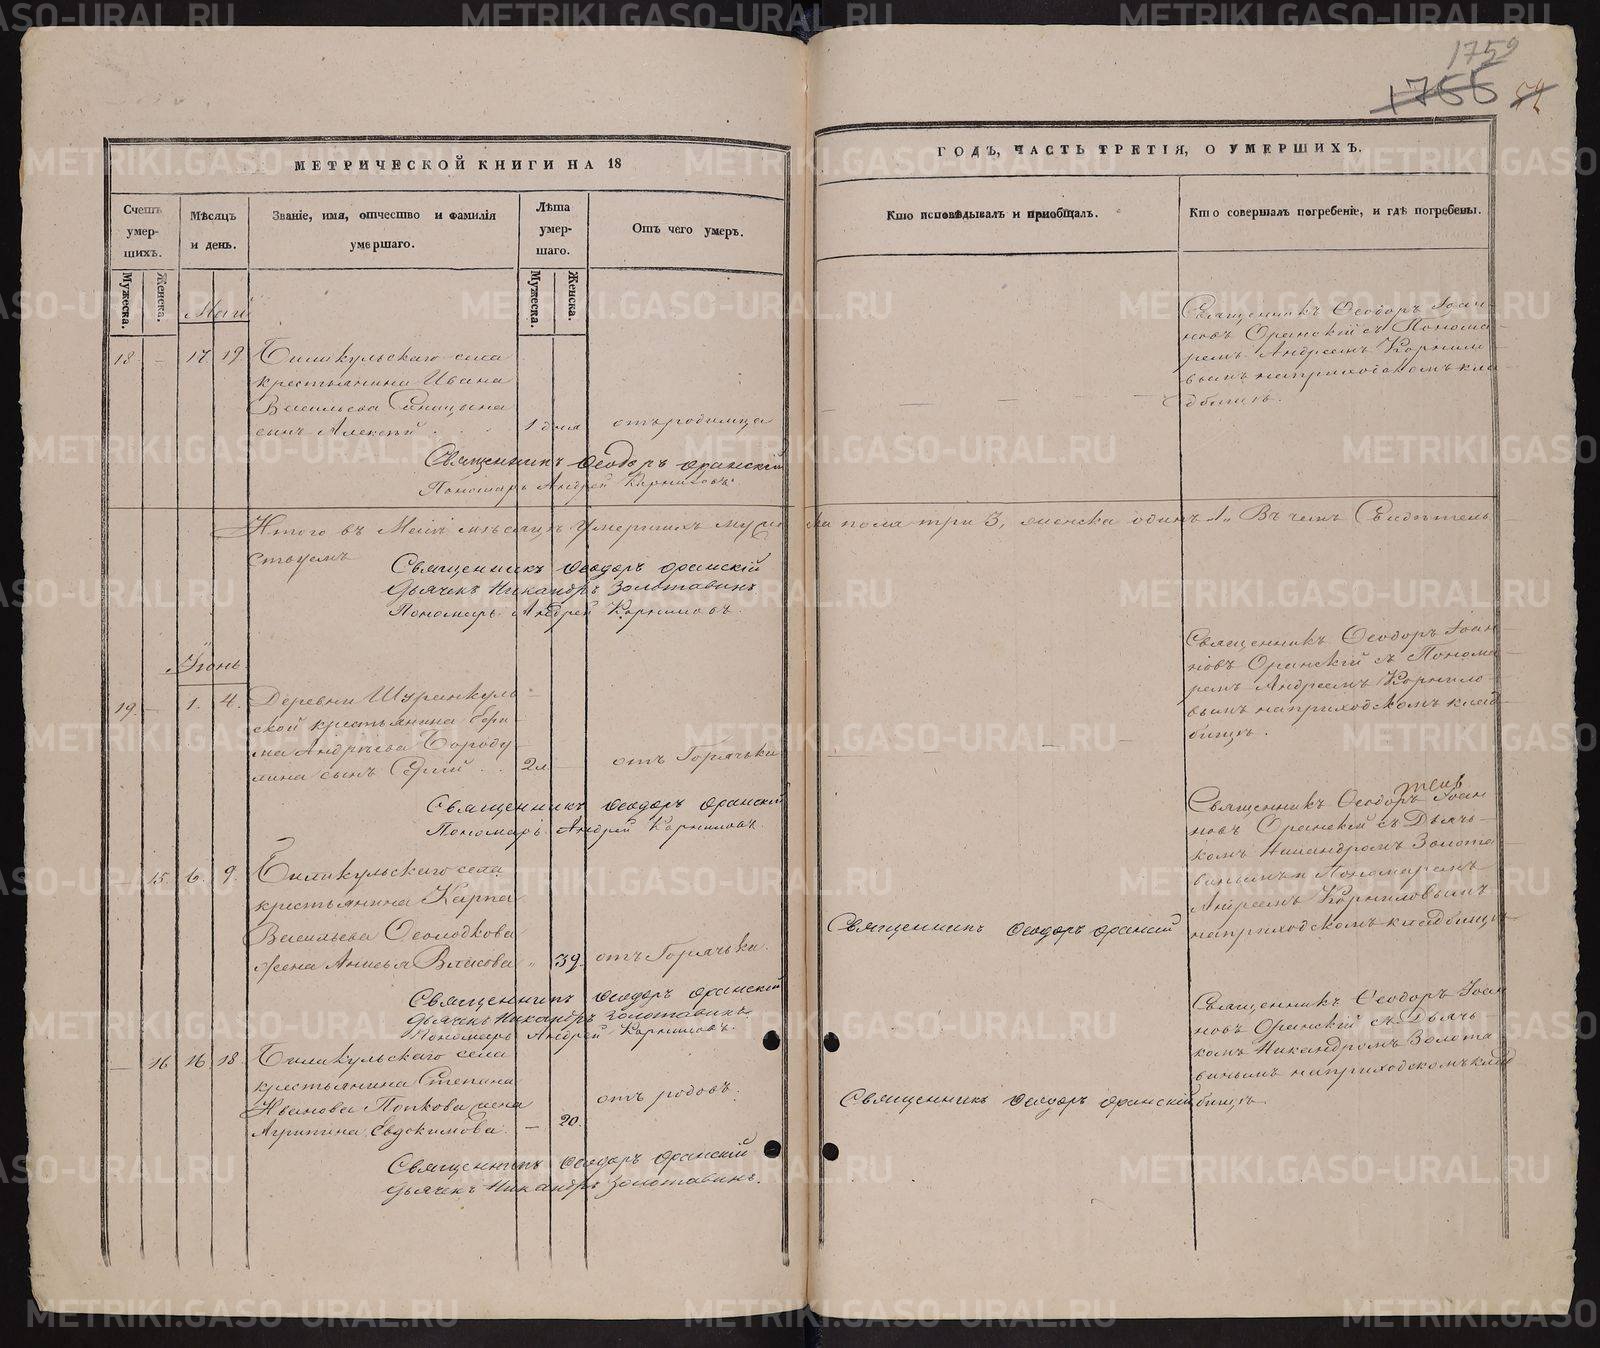 1759
1766 54
МЕТРИЧЕСКОЙ КНИГИ НА 18
ГОДЪ, ЧАСТЬ ТРЕТІЯ, О УМЕРШИХЪ.
Счетъ умер-шихъ.
Мѣсяцъ и день.
Званіе, имя, отчество и фамилія умершаго.
Лѣта умер-шаго.
Отъ чего умеръ.
Кто исповѣдывалъ и пріобщалъ.
Кто совершалъ погребеніе, и гдѣ погребены.
Мужеска.
Женска.
Мужеска.
Женска.
Май
18 – 17 19
крестьянина Ивана
Васильева
сынъ Алексѣй
1 дня
отъ родимца
Священникъ Ѳеодоръ Іоан-
новъ Оранскій съ Понома-
ремъ Андреемъ Корнило-
вымъ на приходскомъ кла-
дбищѣ.
Священникъ Ѳеодоръ Оранскій
Пономарь Андрей Корниловъ.
Итого въ Маѣ мѣсяцѣ умершихъ мужеска пола три 3, женска одинъ 1. Въ чемъ Свидѣтель
ствуемъ
Священникъ Ѳеодоръ Оранскій
Дьячекъ Никандръ Золотавинъ
Пономарь Андрей Корниловъ.
Іюнь
19. – 1. 4.
Деревни
ской крестьянина
сынъ Сергій
2 л
отъ Горячки
Священникъ Ѳеодоръ Іоан-
новъ Оранскій съ Понома-
ремъ Андреемъ Корнило-
вымъ на приходскомъ клад-
бищѣ.
Священникъ Ѳеодоръ Оранскій
Пономарь Андрей Корниловъ.
– 15. 6. 9.
села
крестьянина Карпа
Васильева
жена Анисья Власова
39.
отъ Горячьки.
Священникъ Ѳеодоръ Оранскій
Священникъ Ѳеодоръ Іоан
новъ Оранскій съ Дьячь-
комъ Никандромъ Золота-
винымъ и Пономаремъ
Андреемъ Корниловымъ
на приходскомъ кладбищѣ
Священникъ Ѳеодоръ Оранскій
Дьячекъ Никандръ Золотавинъ
Пономарь Андрей Корниловъ.
– 16 16 18
села
крестьянина Степана
Иванова Попкова жена
Агрипина Евдокимова
– 20.
отъ родовъ.
Священникъ Ѳеодоръ Оранскій
Священникъ Ѳеодоръ Іоан
новъ Оранскій съ Дьячь
комъ Никандромъ Золота
винымъ на приходскомъ клад
бищѣ
Священникъ Ѳеодоръ Оранскій
Дьячекъ Никандръ Золотавинъ.
METRIKI.GASO-URAL.RU